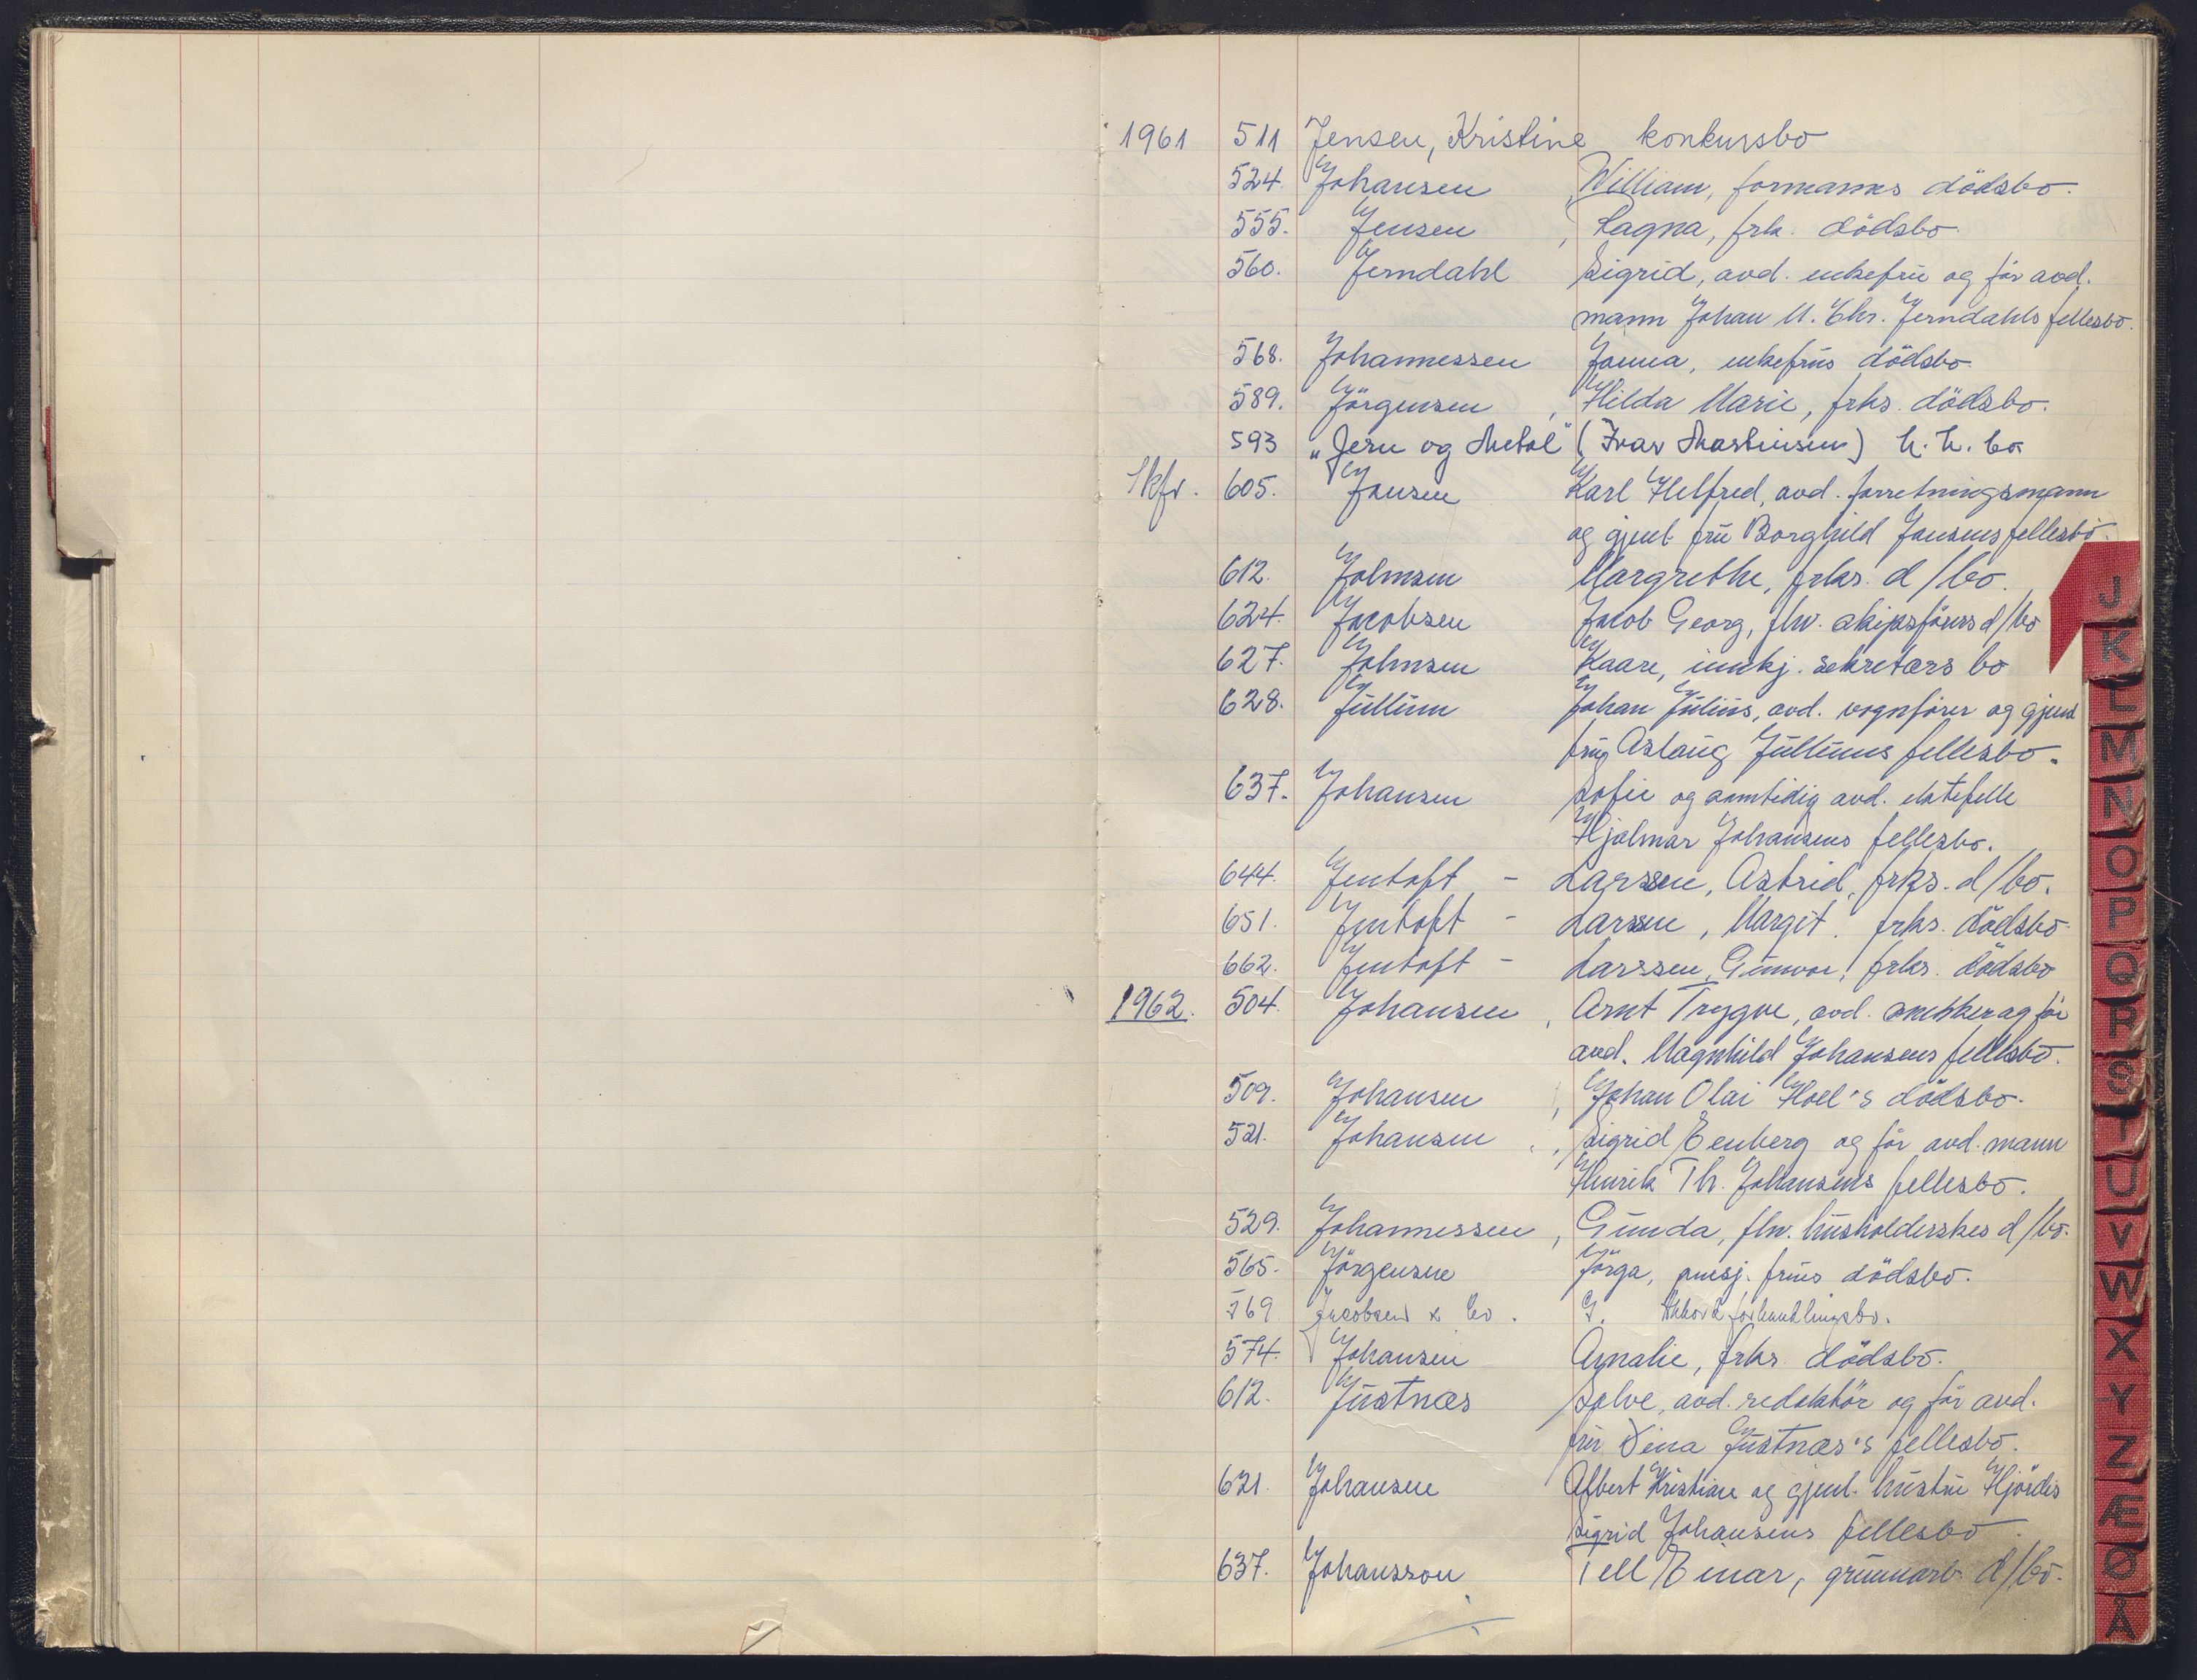 1961 511 Jensen, Kristine konkursbo
524. Johansen , William, formanns dödsbo.
555. Jensen , Lagna, frk. dödsbo
560. Jerndahl Sigrid, avd. enkefru og før avd.
mann Johan M. Chr. Jerndahls fellesbo.
568. Johannessen Janna, enkefrus dödsbo
589. Jörgensen , Hilda Marie, frks. dödsbo.
593 "Jern og Metal" (Ivar Martinsen) k.k. bo
Skfr. 605. Jansen Karl Helfred, avd. forretningsmann
og gjenl. fru Borghild Jansens fellesbo.
612. Johnsen Margrethe, frks. d/bo.
624. Jacobsen Jacob Georg, fhv. skipsförers d/bo
627. Johnsen Kaare, innkj. sekretærs bo
628. Jullum Johan Julius, avd. vognfører og gjenl
fru Aslaug Jullums fellesbo.
637. Johansen Sofie og samtidig avd. ektefelle
Hjalmar Johansens fellesbo.
644. Jentoft - Larssen, Astrid, frks. d/bo.
651. Jentoft - Larssen, Margit, frks. dödsbo
662. Jentoft - Larssen, Gunvor, frks. dödsbo
1962. 504. Johansen , Arnt Trygve, avd. snekker og før
avd. Magnhild Johansens fellesbo.
509. Johansen , Johan Olai Hoel's dödsbo.
521. Johansen , Sigrid Eenberg og før avd. mann
Henrik Th. Johansens fellesbo.
529. Johannessen , Gunda, fhv. husholderskes d/bo.
565. Jörgensen Jörga, pensj. frues dödsbo.
569 Jacobsen & Co. G. Akkordforhandlingsbo.
574. Johansen Amalie, frks. dödsbo.
612. Justnæs Sølve, avd. redaktör og før avd.
fru Dina Justnæs's fellesbo.
621. Johansen Albert Kristian og gjenl. hustru Hjördis
Sigrid Johansens fellesbo.
637. Johansson Tell Einar, grunnarb. d/bo.
J
K
L
M
N
O
P
Q
R
S
T
U
V
W
X
Y
Z
Æ
Ø
Å